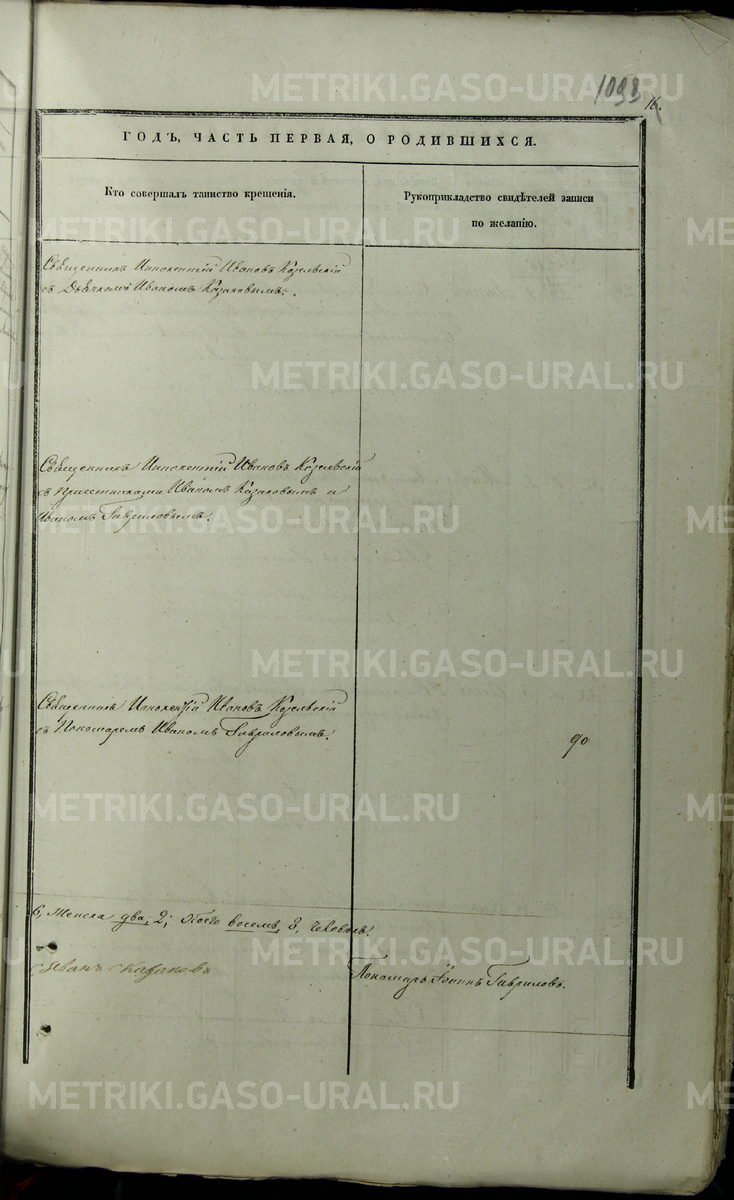 1093
16.
ГОДЪ, ЧАСТЬ ПЕРВАЯ, О РОДИВШИХСЯ.
Кто совершалъ таинство крещенія.
Рукоприкладство свидѣтелей записи
по желанію.
Священникъ Иннокентій Ивановъ Козельскій
съ Дьячкомъ Иваномъ Казаковымъ.
Священникъ Иннокентій Ивановъ Козельскій
съ Причетниками Иваномъ Казаковымъ и
Иваномъ Гавриловымъ.
Священникъ Иннокентій Ивановъ Козельскій
съ Пономаремъ Иваномъ Гавриловымъ.
90
6, Женска два, 2; Обоего восемь, 8, человѣкъ.
Иванъ Казаковъ
Пономарь Іоаннъ Гавриловъ.
METRIKI.GASO-URAL.RU